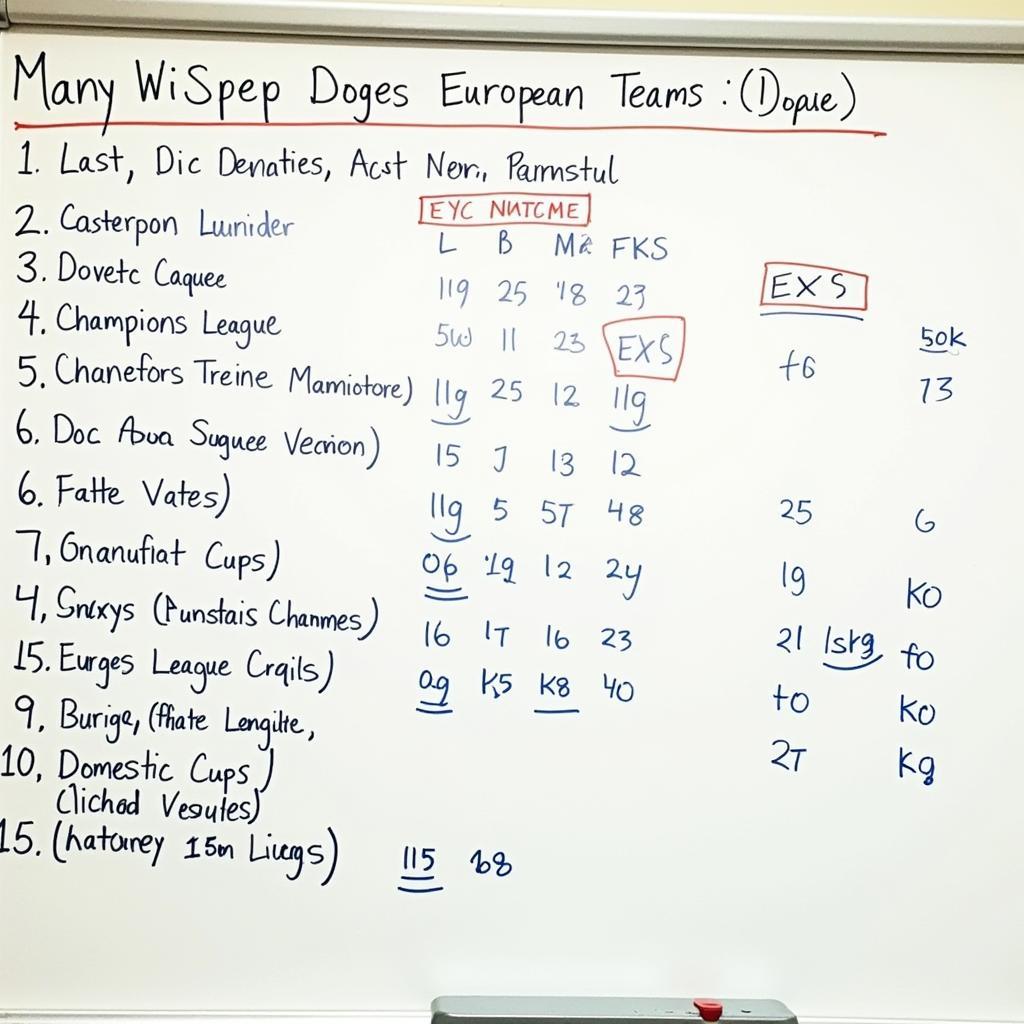 Many WiSpep Doges European Teams : (Dopue)
1. Last, Dic Denaties, Acst Nern, Parmstul
2. Casterpon Luunider
EYC NUTCME
L B M2 FKS
3. Dovetc Caquee
119 25 '18 23
EXS
4. Champions League
5W 11 23 EXS
50K
5. Chanefors Treine Mamiotore)
11g 25 12 11g
t6 73
6. Doc Aboa Suguee Vecnion)
15 J 13 12
6. Fatte Vates)
11g 5 5T 48
25 G
7, Gnanufiat Cups)
06 '19 12 2y
19 KO
4, Snxys (Punstais Chanmes)
16 1T 16 23
21 1srg fo
15. Eurges League Crqils)
0g K5 K8 40
9, Buriga, (ffiate Lengilte,
to KO
10, Domestic Cups)
2T Kg
(lichod Vesutes)
15. (hatourey 15m Liucgs)
115 b8